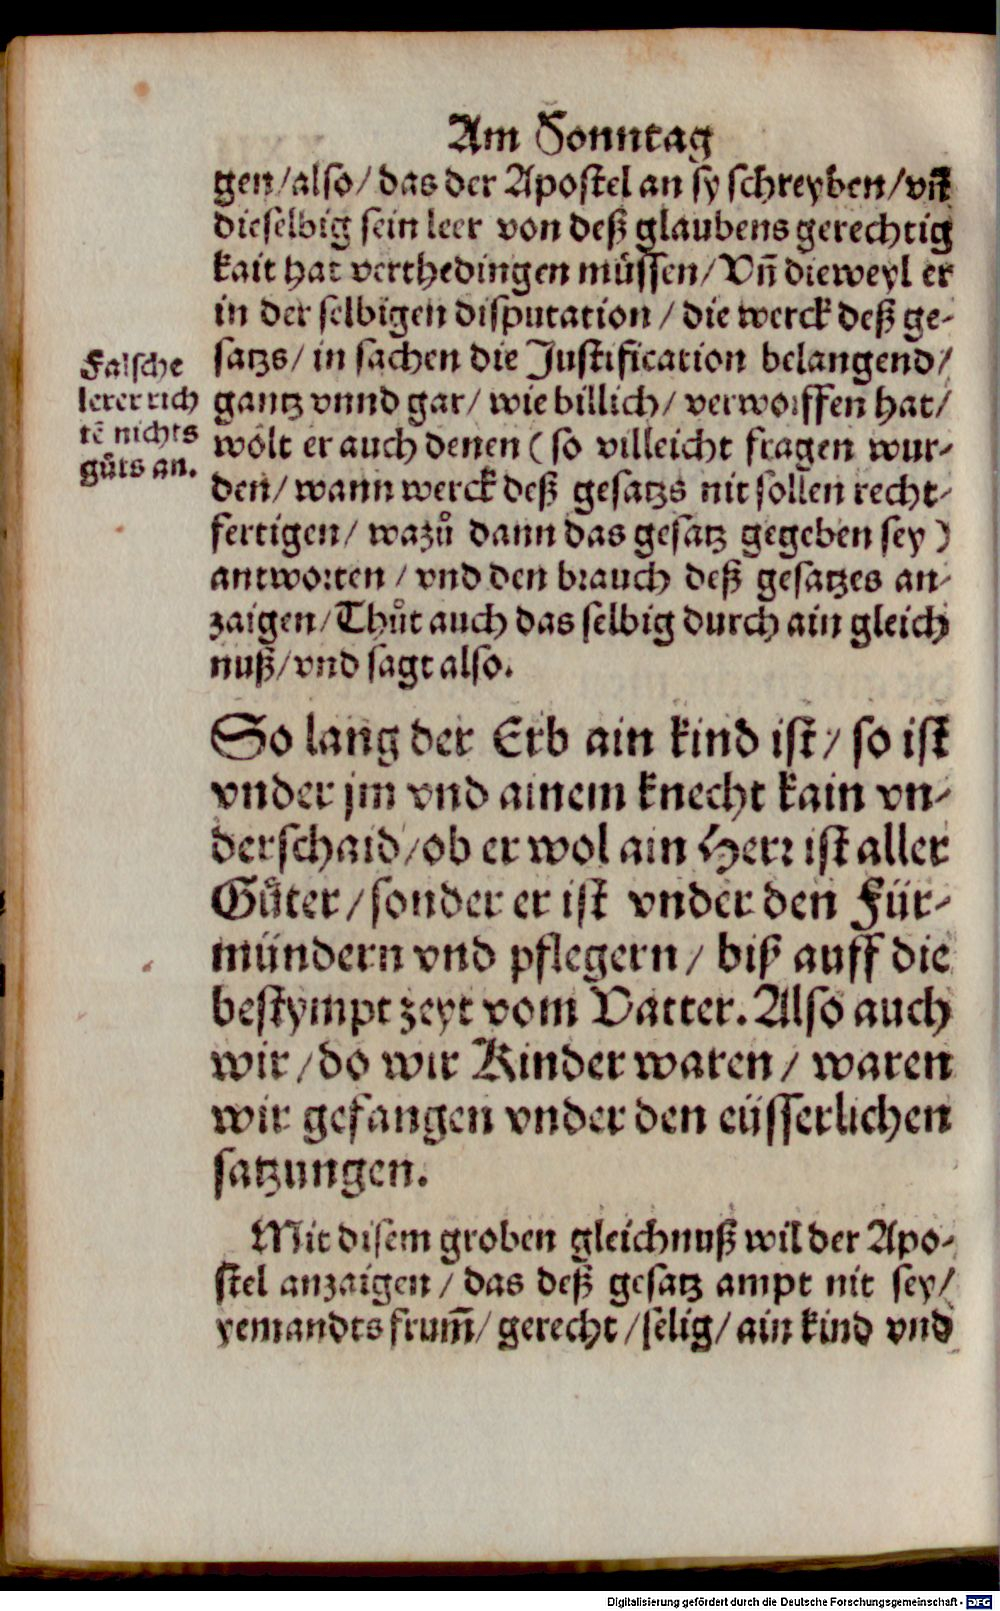 Am Sonntag
gen/also/das der Apostel an sy schreyben/vñ
dieselbig sein leer von deß glaubens gerechtig
kait hat verthedingen müssen/Vñ dieweyl er
in der selbigen disputation/die werck deß ge-
satzs/in sachen die Justification belangend/
gantz vnnd gar/wie billich/verworffen hat/
wölt er auch denen (so villeicht fragen wur-
den/wann werck deß gesatzs nit sollen recht-
fertigen/wazů dann das gesatz gegeben sey)
antworten/vnd den brauch deß gesatzes an-
zaigen/Thůt auch das selbig durch ain gleich
nuß/vnd sagt also.
Falsche
lerer rich
tẽ nichts
gůts an.
So lang der Erb ain kind ist/so ist
vnder jm vnd ainem knecht kain vn-
derschaid/ob er wol ain Herr ist aller
Gůter/sonder er ist vnder den Für-
mündern vnd pflegern/biß auff die
bestympt zeyt vom Vatter. Also auch
wir/do wir Kinder waren/waren
wir gefangen vnder den eüsserlichen
satzungen.
Mit disem groben gleichnuß wil der Apo-
stel anzaigen/das deß gesatz ampt nit sey/
yemandts frum̃/gerecht/selig/ain kind vnd
Digitalisierung gefördert durch die Deutsche Forschungsgemeinschaft - DFG